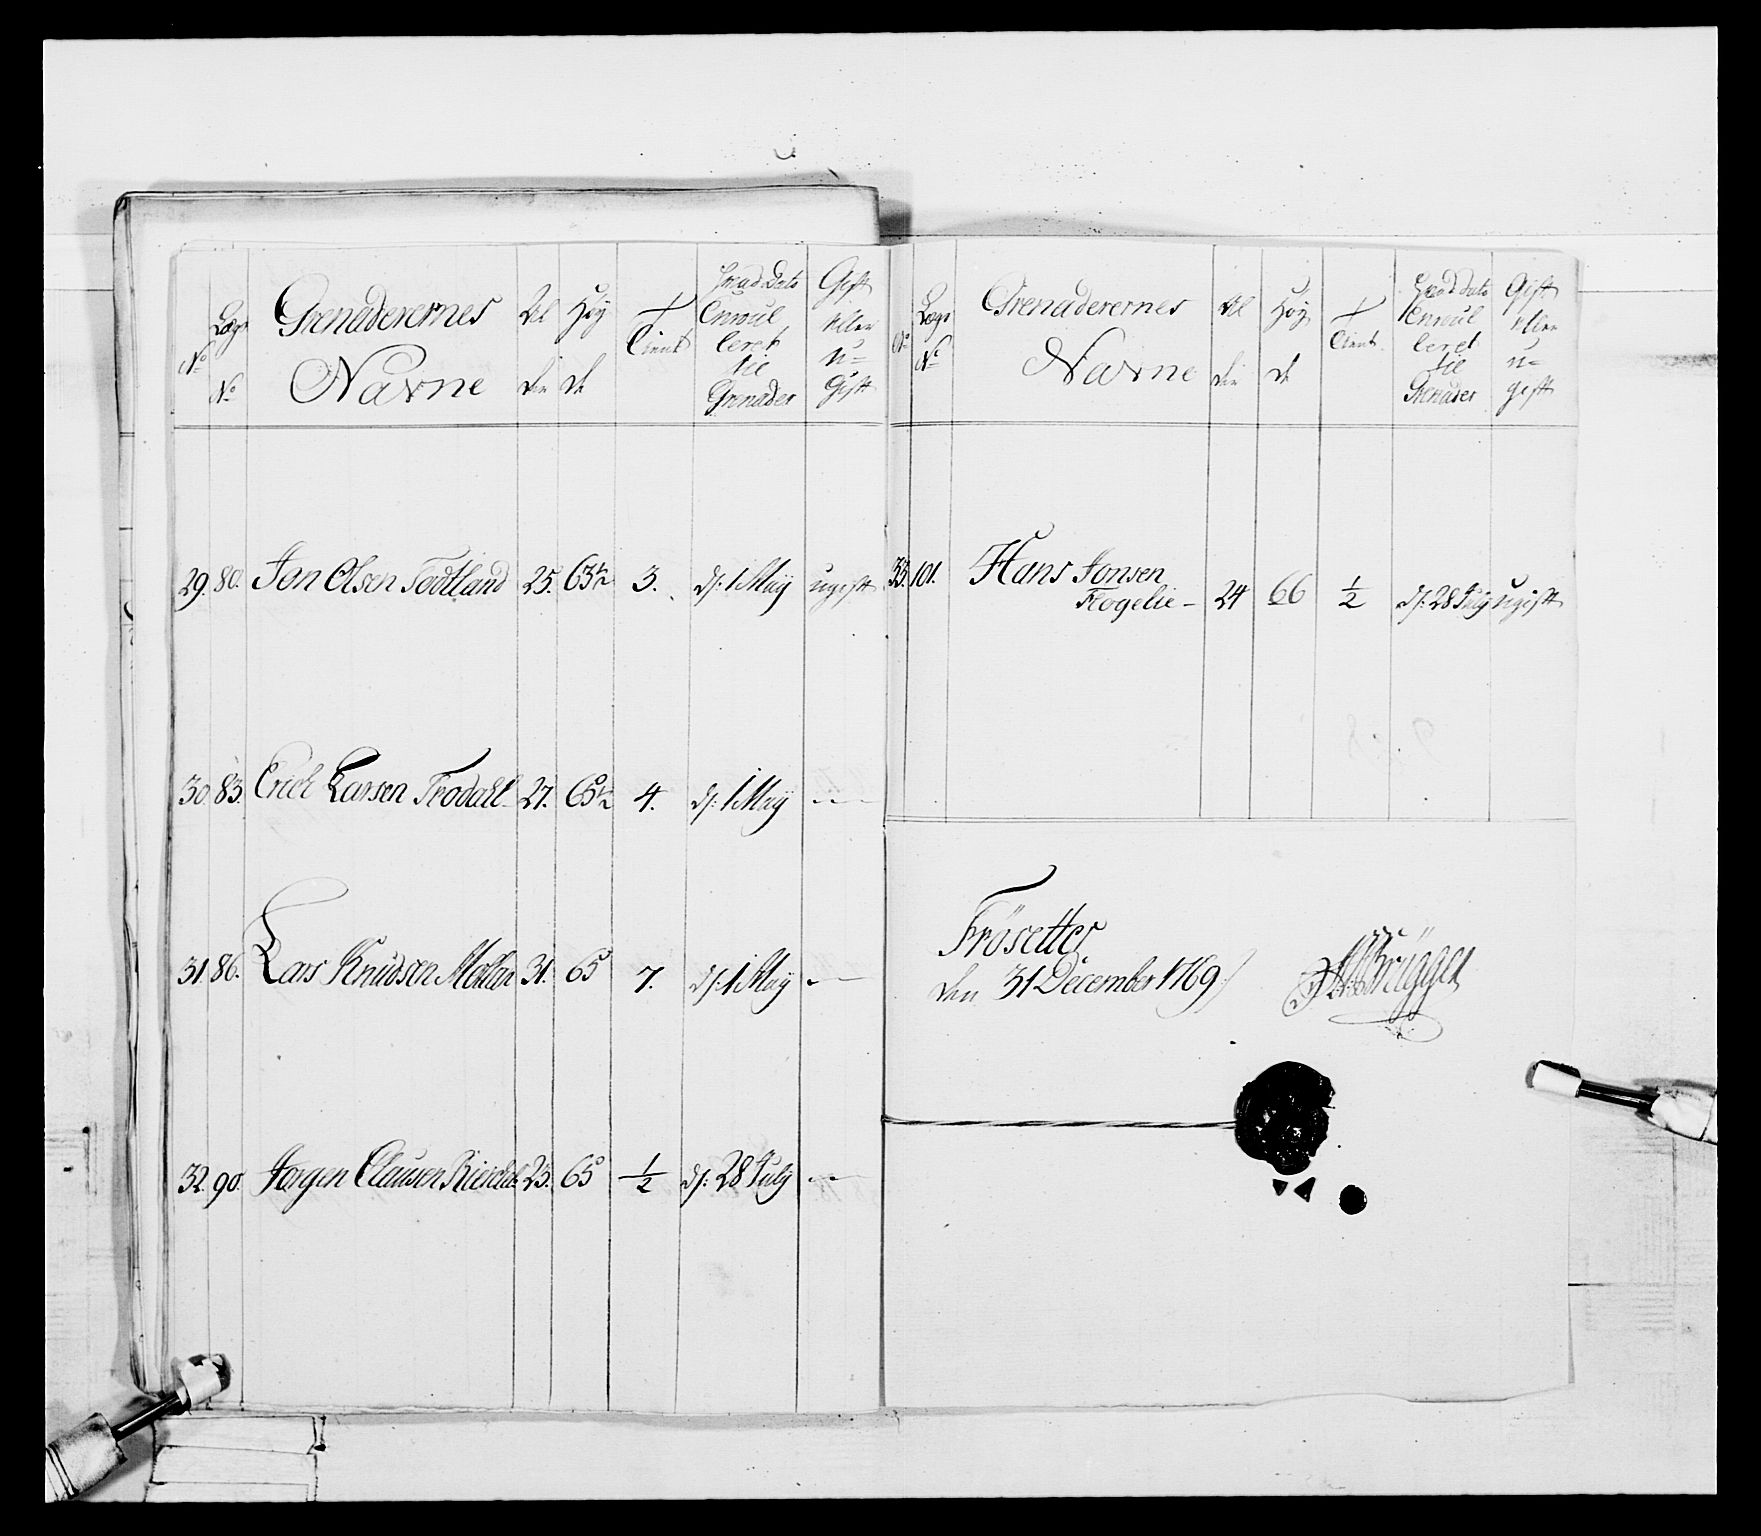 No
Lægs No
Grenaderernes Navne
Al der
Høy de
Tient
hvad Dato Enroul leret til Grenader
Gift eller u= Gift
29. 80. Jon Olsen Todtland 25. 63½ 3. d: 1 Maÿ ugift
30. 83. Erich Larsen Frodahl 27. 65½ 4. d: 1 Maÿ -
31. 86. Lars Knudsen 31. 65 7. d: 1 Maÿ -
32. 90. Jørgen Clausen 23. 65 ½ d: 28 July -
No
Lægs No
Grenaderernes Navne
Al der
Høy de
Tient
hvad dato Enroul leret til Grenader
Gift eller u= gift
33. 101. Hans Jonsen
Flogelie - 24 66 ½ d: 28 July ugift
Frösetter
den 31 December 1769
Brügger